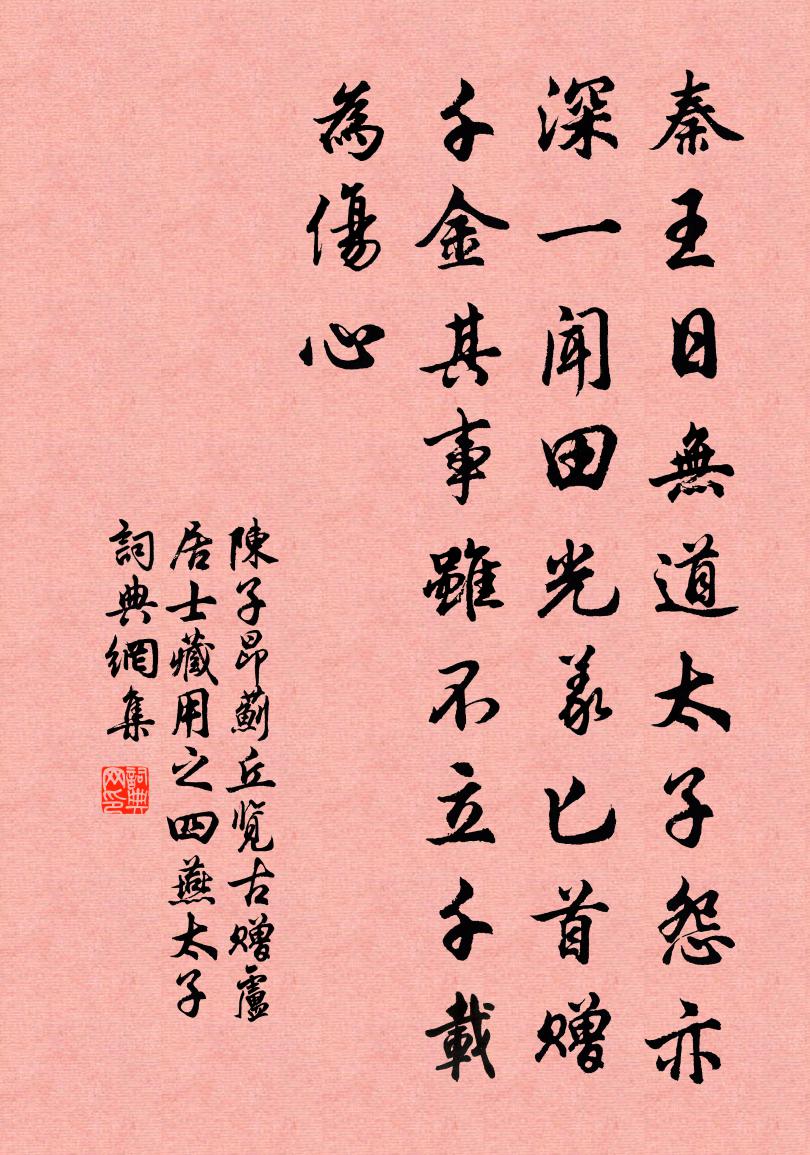 秦王日無道太子怨亦
深一聞田光義匕首贈
千金其事雖不立千載
為傷心
陳子昂薊丘覽古贈盧
居士藏用之四燕太子
詞典網集
詞典网印